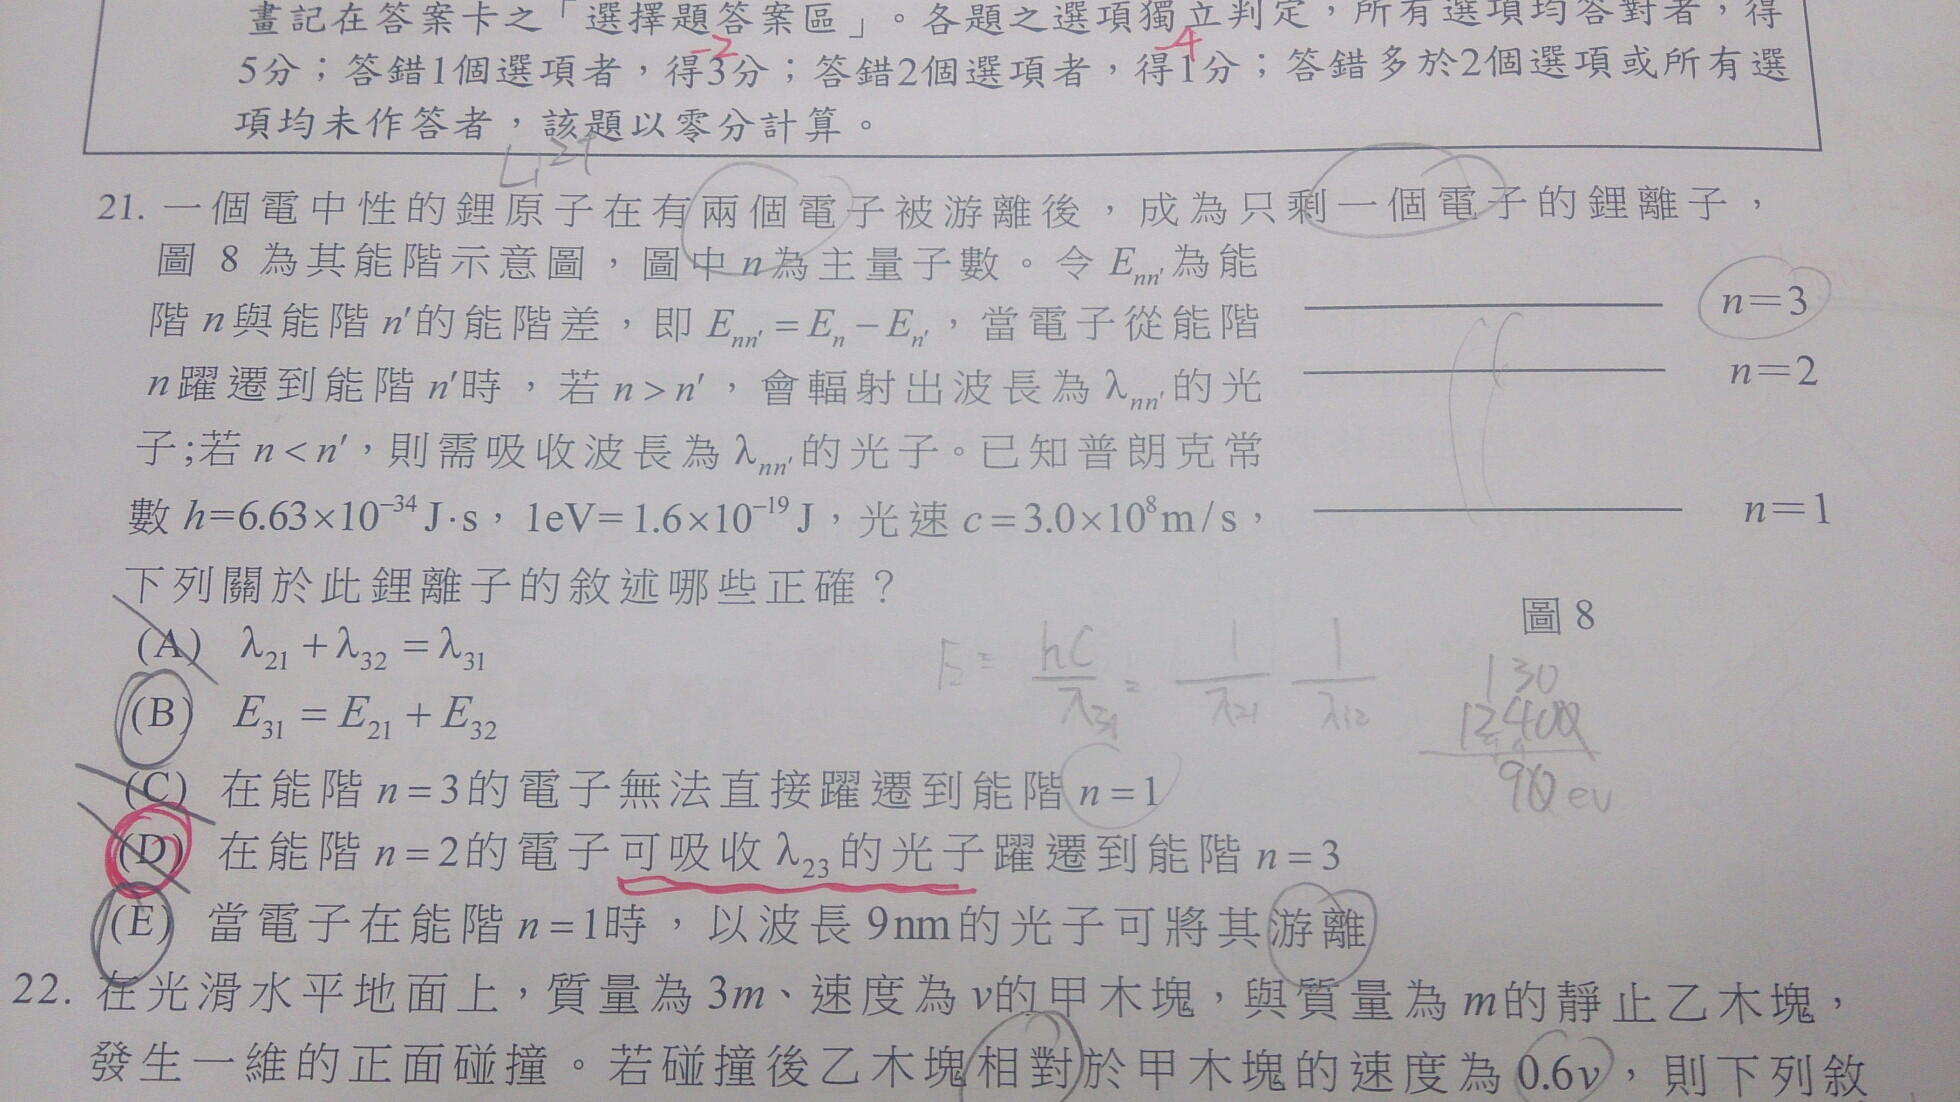 畫記在答案卡之「選擇題答案區」。各題之選項獨立判定，所有選項均答對者，得
-2 -4
5分；答錯1個選項者，得3分；答錯2個選項者，得1分；答錯多於2個選項或所有選
項均未作答者，該題以零分計算。
Li2+
21. 一個電中性的鋰原子在有兩個電子被游離後，成為只剩一個電子的鋰離子，
圖 8 為其能階示意圖，圖中n為主量子數。令 Enn′為能
階n與能階n′的能階差，即 Enn′=En−En′，當電子從能階
n躍遷到能階n′時，若n>n′，會輻射出波長為λnn′的光
子;若n<n′，則需吸收波長為λnn′的光子。已知普朗克常
數h=6.63×10−34 J·s，1eV=1.6×10−19 J，光速c=3.0×108m/s，
下列關於此鋰離子的敘述哪些正確？
n=3
n=2
n=1
圖 8
(A) λ21+λ32=λ31
(B) E31=E21+E32
(C) 在能階n=3的電子無法直接躍遷到能階n=1
(D) 在能階n=2的電子可吸收λ23的光子躍遷到能階n=3
(E) 當電子在能階n=1時，以波長9nm的光子可將其游離
E= hc/λ31 = 1/λ21 1/λ32
130
12400
90 ev
22. 在光滑水平地面上，質量為3m、速度為v的甲木塊，與質量為m的靜止乙木塊，
發生一維的正面碰撞。若碰撞後乙木塊相對於甲木塊的速度為0.6v，則下列敘